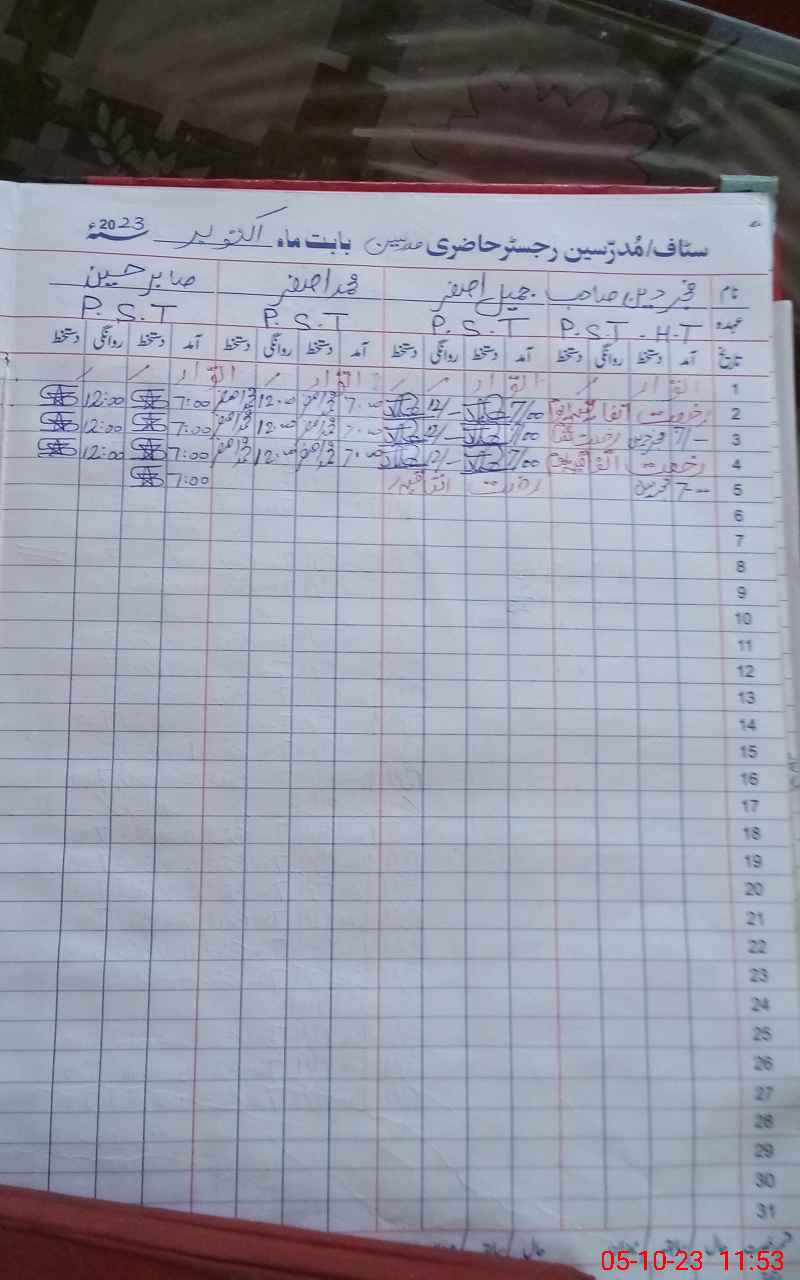 سٹاف/مُدرّسین رجسٹر حاضری مدرسین بابت ماہ اکتوبر 2023ء
نام صاحب جمیل اصغر محمد اصغر صابر حسین
عہدہ P.S.T - H.T P.S.T P.S.T P.S.T
تاریخ آمد دستخط روانگی دستخط آمد دستخط روانگی دستخط آمد دستخط روانگی دستخط آمد دستخط روانگی دستخط
1 اتوار / اتوار / / اتوار / اتوار / /
2 رخصت اتفاقیہ 7/00 12/- 7.00 12.00 7:00 12:00
3 7/- رخصت 7/00 12/- 7.00 12.00 7:00 12:00
4 رخصت اتفاقیہ 7/00 12/- 7.00 12.00 7:00 12:00
5 7-- رخصت اتفاقیہ 7:00
6
7
8
9
10
11
12
13
14
15
16
17
18
19
20
21
22
23
24
25
26
27
28
29
30
31
05-10-23 11:53